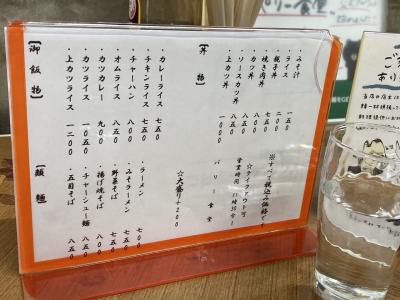 ・みそ汁 一五〇
・ライス 二〇〇
・親子丼 七五〇
・焼き肉丼 八五〇
・カツ丼 八五〇
・ソースカツ丼 八五〇
・上カツ丼 一〇〇〇
【丼物】
※すべて税込み価格です
☆テイクアウト可
営業時間
バリー食堂
・カレーライス 七五〇
・チキンライス 七五〇
・チャーハン
・オムライス 八五〇
・カツカレー 九〇〇
・カツライス 一〇〇〇
・上カツライス 一二〇〇
【御飯物】
☆大盛り+200
・ラーメン 七〇〇
・みそラーメン
・野菜そば 七五〇
・揚げ焼そば 八五〇
・チャーシュー麺 八五〇
・五目そば 八五〇
【麺類】